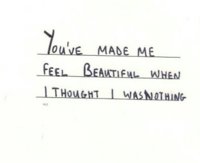 You've made me
feel Beautiful when
I thought I was nothing